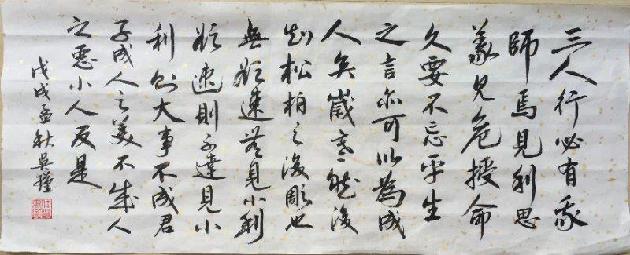 三人行必有我
師焉見利思
義見危授命
久要不忘平生
之言亦可以為成
人矣歲寒然後
知松柏之後彫也
無欲速無見小利
欲速則不達見小
利則大事不成君
子成人之美不成人
之惡小人反是
戊戌孟秋